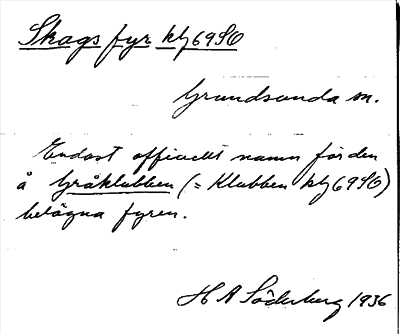 Skags fyr kbl 69SO
Grundsunda sn.
Endast officiellt namn för den
å Gråklubben (= Klubben kbl 69SO)
belägna fyren.
H A Söderberg 1936